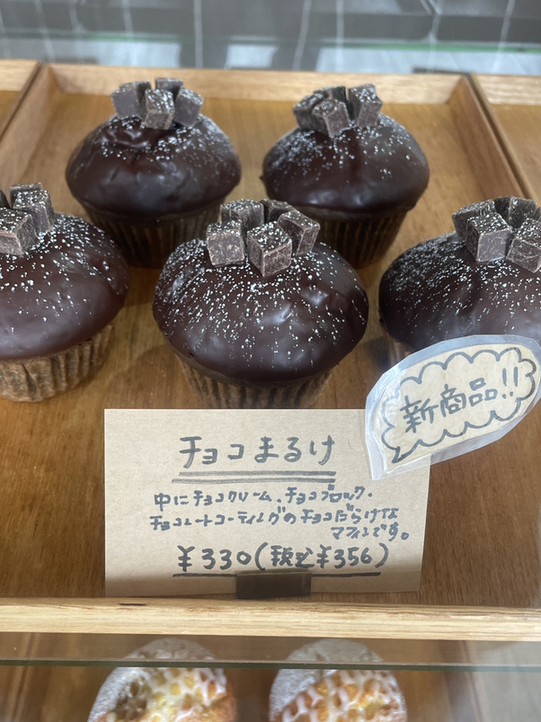 新商品!!
チョコまるけ
中にチョコクリーム、チョコブロック、
チョコレートコーティングのチョコだらけな
マフィンです。
¥330(税込¥356)